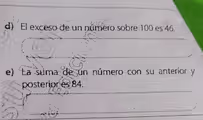 d) El exceso de un número sobre 100 es 46.
e) La suma de un número con su anterior y
posterior es 84.